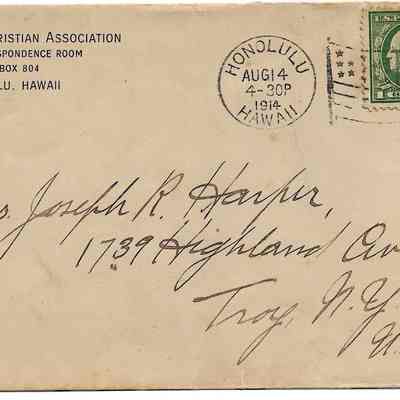 RISTIAN ASSOCIATION
SPONDENCE ROOM
BOX 804
LU, HAWAII
HONOLULU
AUG 14
4-30P
1914
HAWAII
s. Joseph R. Harper,
1739 Highland Av
Troy, N.Y.
U.